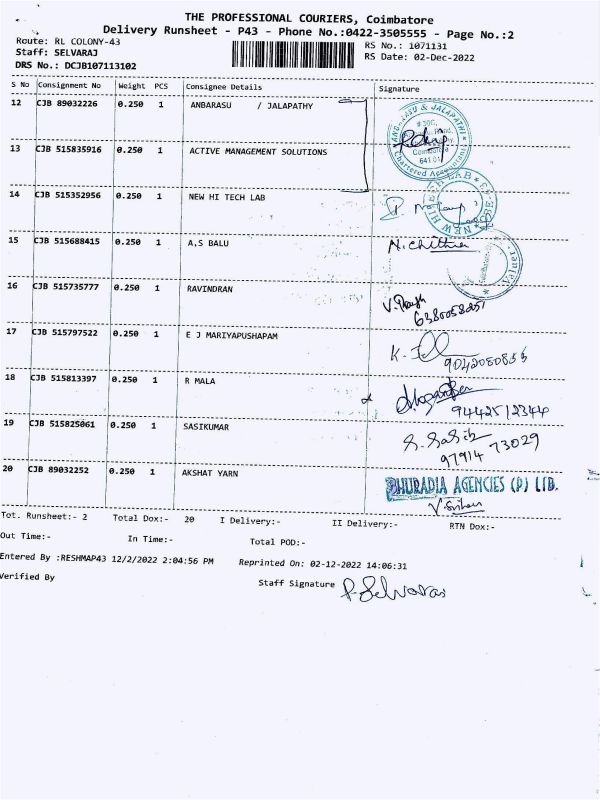 THE PROFESSIONAL COURIERS, Coimbatore
Delivery Runsheet - P43 - Phone No.:0422-3505555 - Page No.:2
Route: RL COLONY-43
RS No.: 1071131
Staff: SELVARAJ
RS Date: 02-Dec-2022
DRS No.: DCJB107113102
S No Consignment No Weight PCS Consignee Details Signature
12 CJB 89032226 0.250 1 ANBARASU / JALAPATHY
& JALAPATHI
Chartered Accountants
13 CJB 515835916 0.250 1 ACTIVE MANAGEMENT SOLUTIONS
14 CJB 515352956 0.250 1 NEW HI TECH LAB
NEW HI TECH LAB
15 CJB 515688415 0.250 1 A,S BALU
16 CJB 515735777 0.250 1 RAVINDRAN
17 CJB 515797522 0.250 1 E J MARIYAPUSHAPAM
9042080855
18 CJB 515813397 0.250 1 R MALA
9442512344
19 CJB 515825061 0.250 1 SASIKUMAR
97914 73029
20 CJB 89032252 0.250 1 AKSHAT YARN
DHURADIA AGENCIES (P) LTD.
Tot. Runsheet:- 2 Total Dox:- 20 I Delivery:- II Delivery:- RTN Dox:-
Out Time:- In Time:- Total POD:-
Entered By :RESHMAP43 12/2/2022 2:04:56 PM Reprinted On: 02-12-2022 14:06:31
Verified By Staff Signature P. Selvaraj